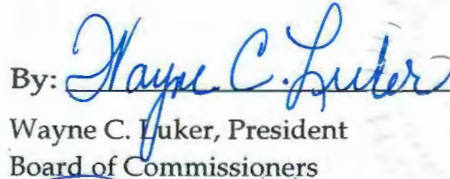 By: Wayne C. Luker
Wayne C. Luker, President
Board of Commissioners